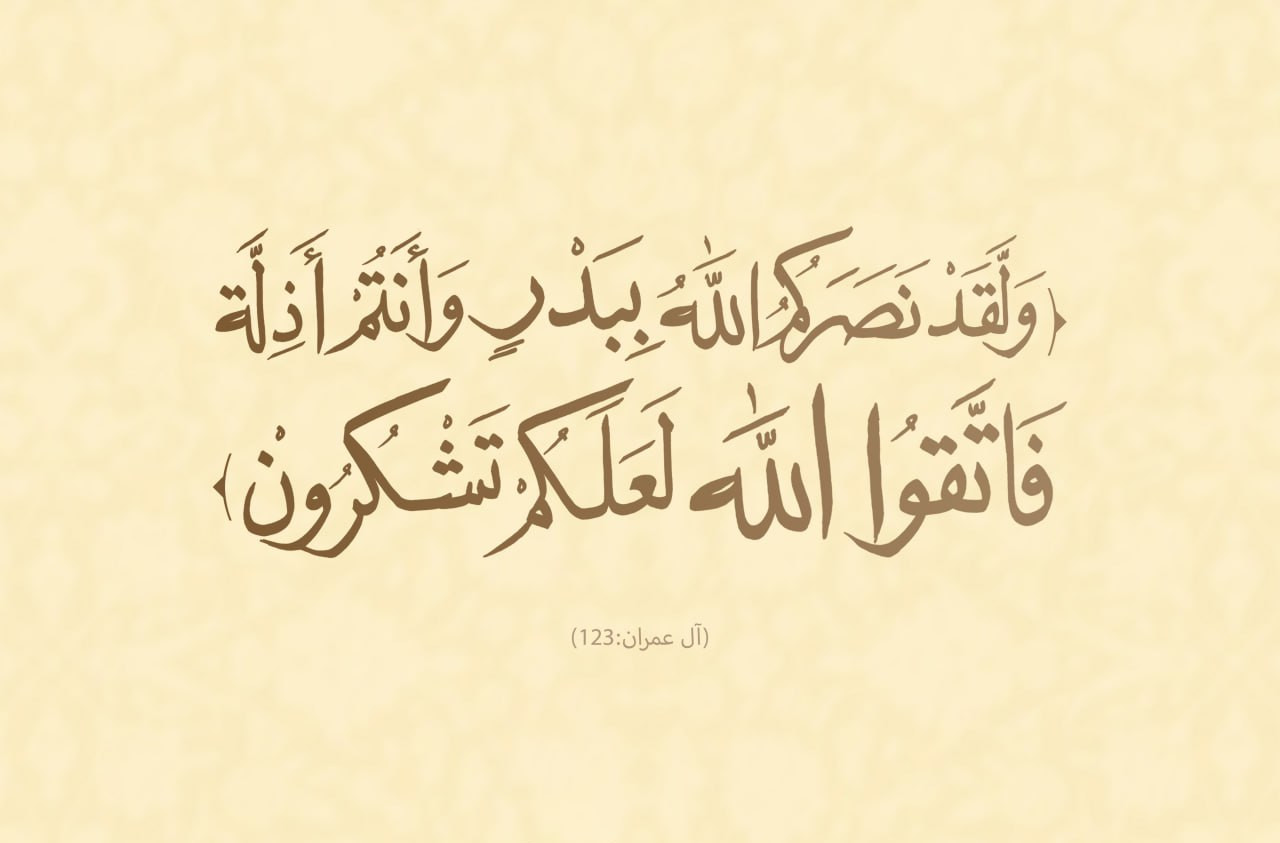 ﴿وَلَّقَدْ نَصَرَكُمُ اللّٰهُ بِبَدْرٍ وَأَنتُمْ أَذِلَّة
فَاتَّقوُا اللّٰه لَعَلَكُمْ تَشْكُرُونْ﴾
(آل عمران:123)